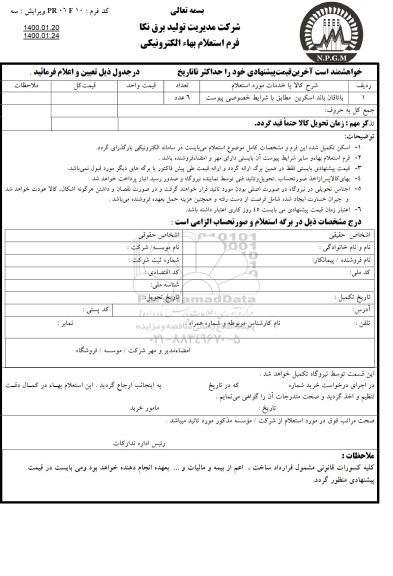 بسمه تعالی
کد فرم : PR ۰۶ F ۱۰ ویرایش : سه
1400.01.20
1400.01.24
شرکت مدیریت تولید برق نکا
فرم استعلام بهاء الکترونیکی
N.P.G.M
خواهشمند است آخرین قیمت پیشنهادی خود را حداکثر تا تاریخ درجدول ذیل تعیین و اعلام فرمائید .
ردیف شرح کالا یا خدمات مورد استعلام تعداد قیمت واحد قیمت کل ملاحظات
۱ یاتاقان باند اسکرین مطابق با شرایط خصوصی پیوست ۶ عدد
جمع کل به حروف:
تذکر مهم : زمان تحویل کالا حتماً قید گردد.
توضیحات:
۱- اسکن تکمیل شده این فرم و مشخصات کامل موضوع استعلام می‌بایست در سامانه الکترونیکی بارگذرای گردد.
۲- فرم استعلام بهاءو سایر شرایط پیوست آن بایستی دارای مهر و امضاءفروشنده باشد .
۳- قیمت پیشنهادی بایستی فقط در همین برگ ارائه گردد و ارائه قیمت طی پیش فاکتور یا برگه های دیگر مورد قبول نمی‌باشد.
۴- بهای‌کالاپس‌ازاخذ صورتحساب ،تحویل‌وتائید فنی توسط نماینده نیروگاه و صدور رسید انبار پرداخت خواهد شد.
۵- اجناس تحویلی در نیروگاه در صورت اصلی بودن مورد تائید قرار خواهند گرفت و در صورت نقصان و داشتن هرگونه اشکال، کالا عودت خواهد شد
و جبران خسارت ایجاد شده شامل فرصت از دست رفته و همچنین هزینه حمل بعهده فروشنده می‌باشد .
۶- اعتبار زمان قیمت پیشنهادی می بایست ۴۵ روز کاری اعتبار داشته باشد.
درج مشخصات ذیل در برگه استعلام و صورتحساب الزامی است :
اشخاص حقیقی اشخاص حقوقی
نام و نام خانوادگی : نام موسسه/ شرکت :
نام فروشنده / پیمانکار: شماره ثبت شرکت :
کد ملی: کد اقتصادی:
شناسه ملی:
تاریخ تکمیل : تاریخ تحویل:
آدرس: کد پستی :
تلفن : نام کارشناس مربوطه و شماره همراه : نمابر :
ParsNamadData
۰۲۱-۸۸۳۴۹۶۷۰-۵
امضاءمدیر و مهر شرکت / موسسه / فروشگاه
این قسمت توسط نیروگاه تکمیل خواهد شد .
در اجرای درخواست خرید شماره که در تاریخ به اینجانب ارجاع گردید . این استعلام بهاء در کمال دقت
تنظیم و اخذ گردید و صحت مندرجات آن را گواهی می‌نمایم .
تاریخ : مامور خرید
صحت مراتب فوق در مورد استعلام از شرکت / مؤسسه مذکور مورد تائید میباشد .
رئیس اداره تدارکات
ملاحظات :
کلیه کسورات قانونی مشمول قرارداد ساخت ، اعم از بیمه و مالیات و ... بعهده انجام دهنده خواهد بود ومی بایست در قیمت
پیشنهادی منظور گردد.